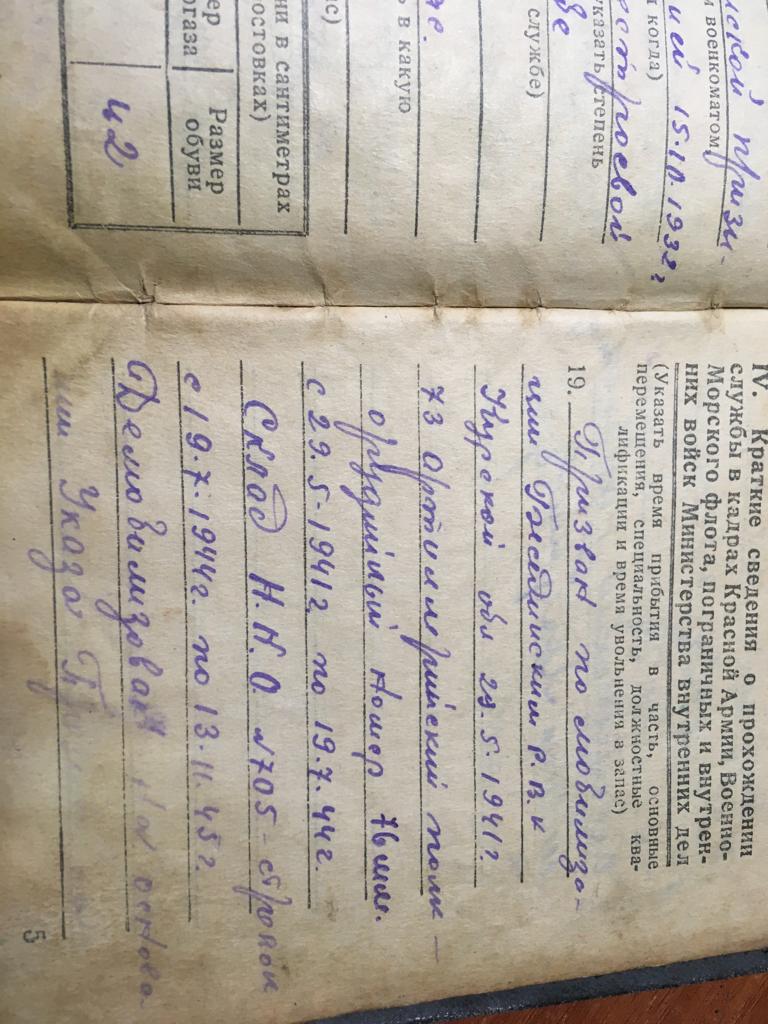 ской призы-
м военкоматом,
15.10.1932 г
и когда)
строевой
указать степень
службе)
ь в какую
с)
ни в сантиметрах
остовках)
ер
Размер
обуви
42
IV. Краткие сведения о прохождении
службы в кадрах Красной Армии, Военно-
Морского флота, пограничных и внутрен-
них войск Министерства внутренних дел
(Указать время прибытия в часть, основные
перемещения, специальность, должностные ква-
лификации и время увольнения в запас)
19. Призван по мобилизо-
ции Р.В.К
Курской обл 29.5.1941г.
73 Артиллерийский полк –
орудийный номер 76мм.
с 29.5.1941г по 19.7.44г.
Склад Н.К.О. №705 –
с 19.7.1944г. по 13.11.45г.
Демобилизован на основа
нии Указа
5